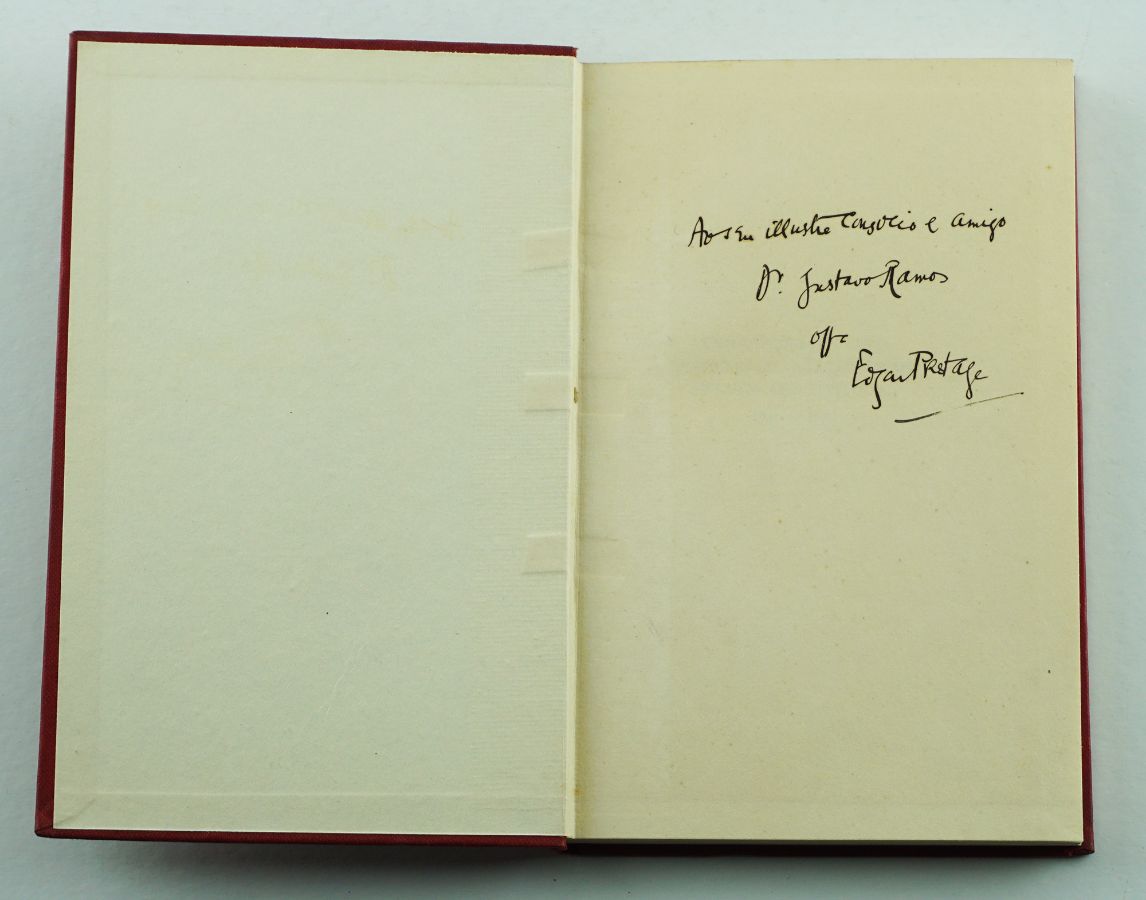 Ao seu illustre consocio e amigo
Dr. Gustavo Ramos
off.
Edgar Prestage